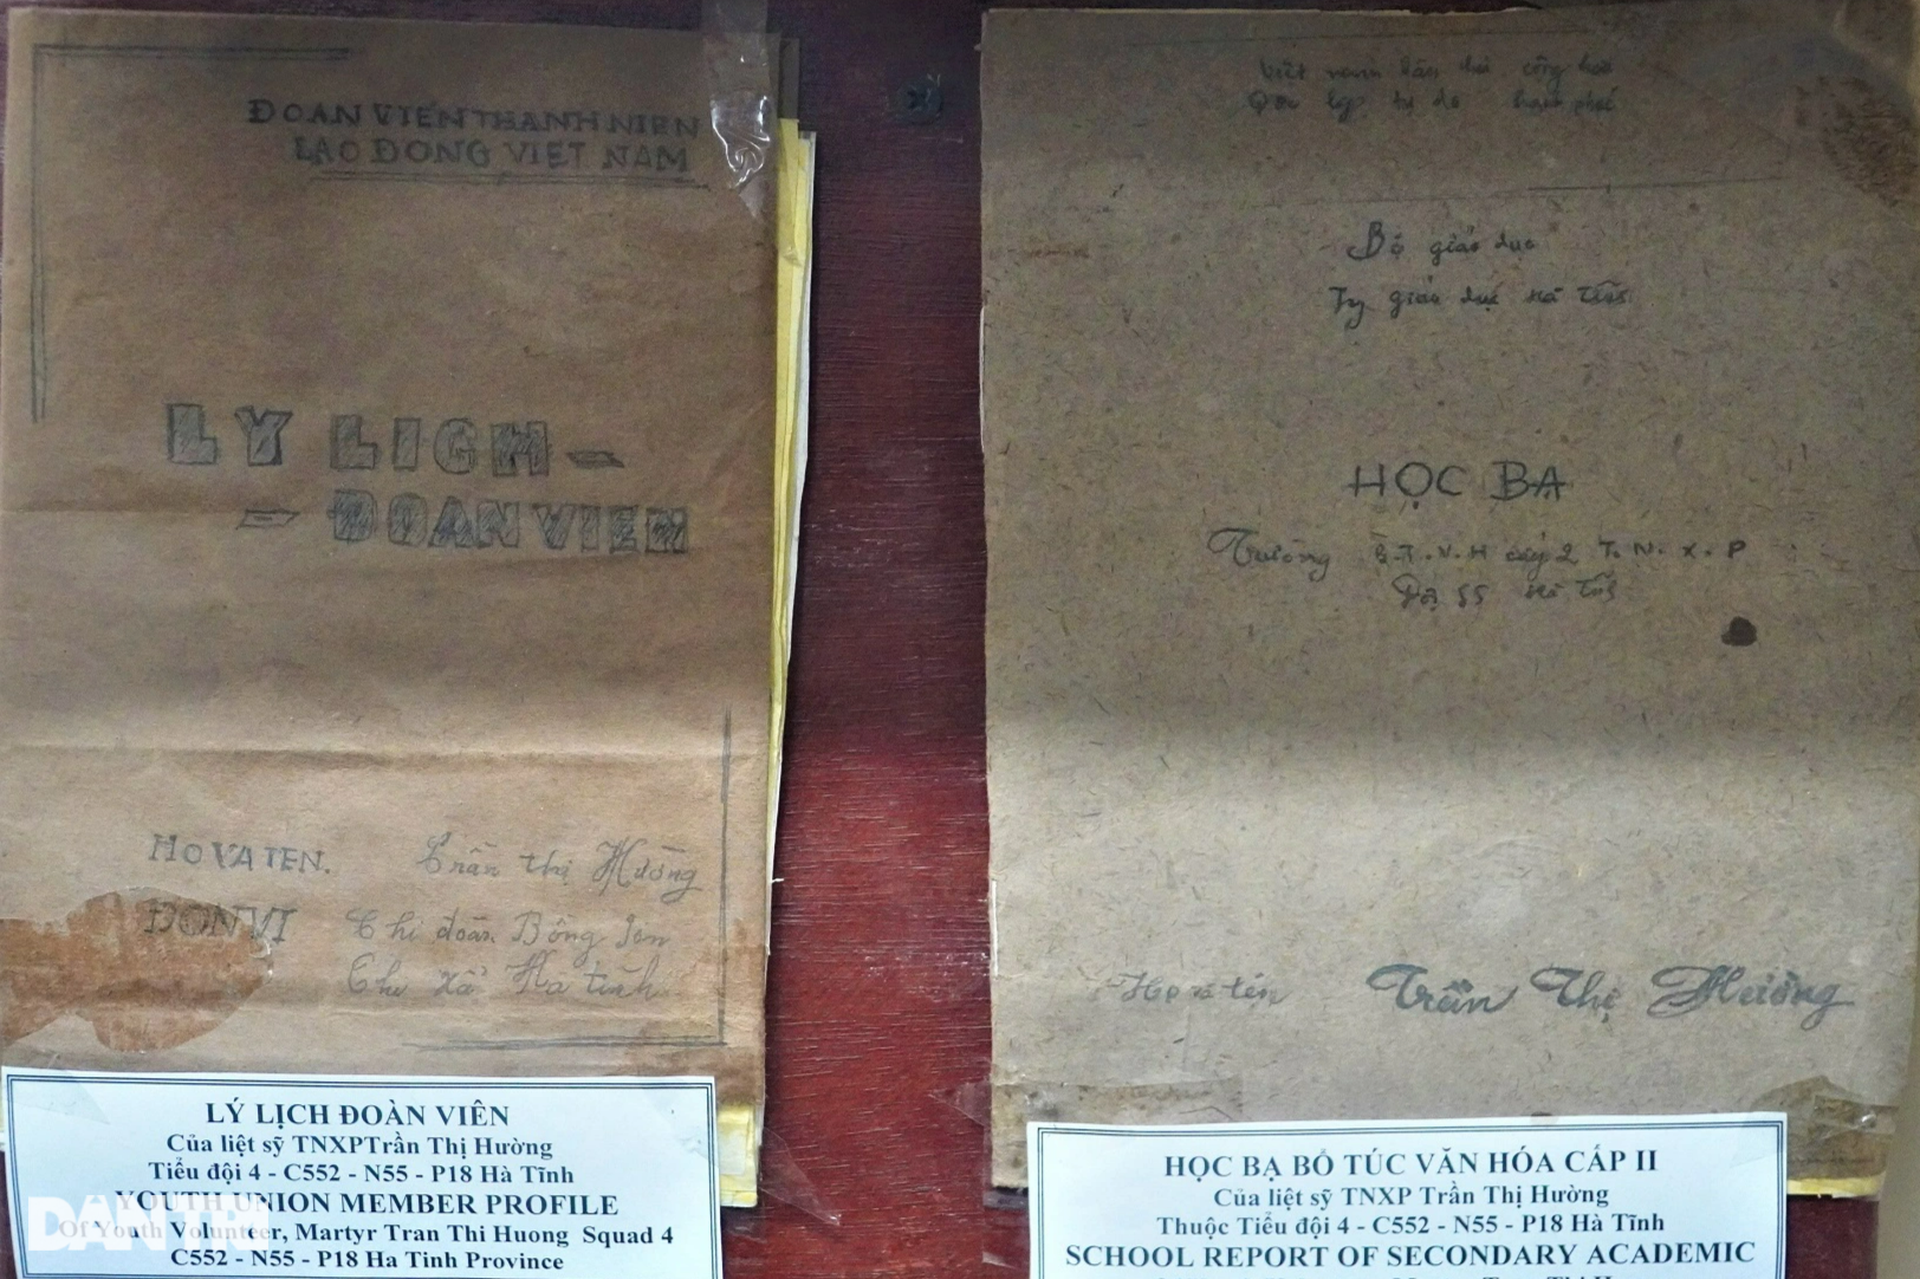 ĐOAN VIEN THANH NIEN
LAO DONG VIET NAM
LY LICH -
- ĐOAN VIEN
HO VA TEN. Trần thị Hường
ĐON VI Chi đoàn Bông Sen
Thị xã Hà tĩnh
LÝ LỊCH ĐOÀN VIÊN
Của liệt sỹ TNXPTrần Thị Hường
Tiểu đội 4 - C552 - N55 - P18 Hà Tĩnh
YOUTH UNION MEMBER PROFILE
Of Youth Volunteer, Martyr Tran Thi Huong Squad 4
C552 - N55 - P18 Ha Tinh Province
DÂN TRÍ
Việt nam dân chủ cộng hoà
Độc lập tự do hạnh phúc
Bộ giáo dục
Ty giáo dục Hà Tĩnh
HỌC BẠ
Trường B.T.V.H cấp 2 T.N.X.P
Đội 55 Hà Tĩnh
Họ và tên Trần Thị Hường
HỌC BẠ BỔ TÚC VĂN HÓA CẤP II
Của liệt sỹ TNXP Trần Thị Hường
Thuộc Tiểu đội 4 - C552 - N55 - P18 Hà Tĩnh
SCHOOL REPORT OF SECONDARY ACADEMIC